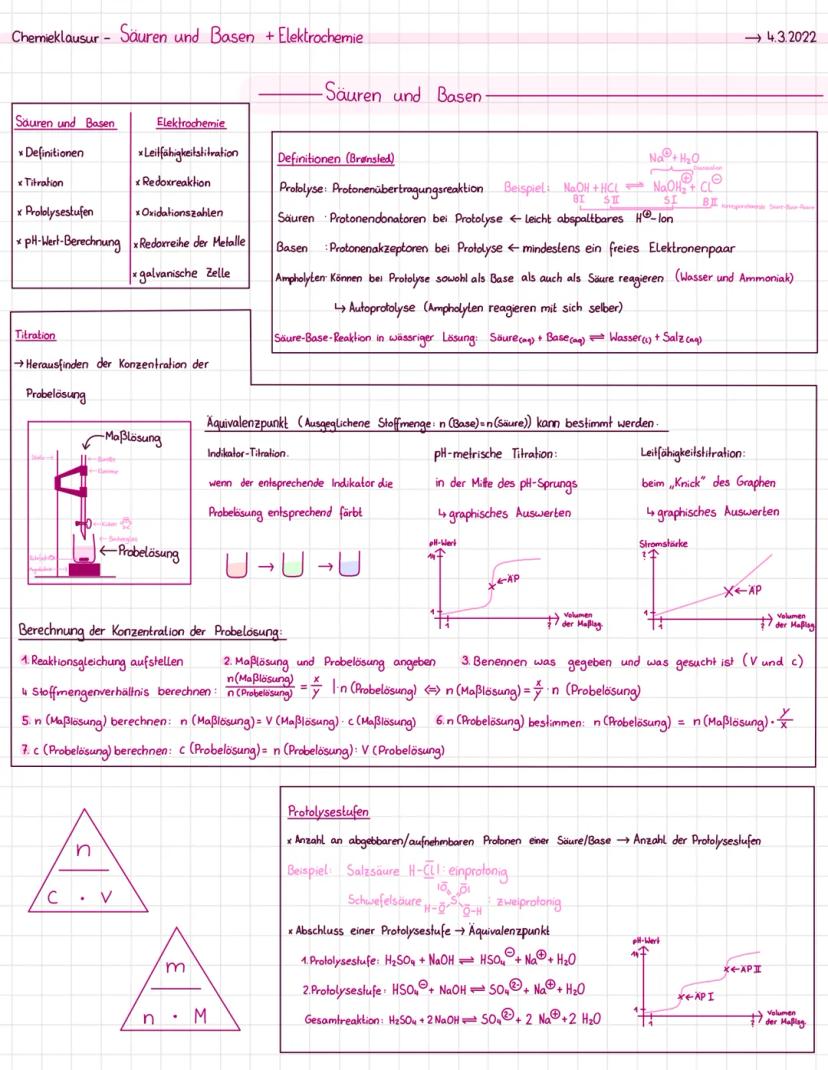 Chemieklausur - Säuren und Basen + Elektrochemie → 4.3.2022
Säuren und Basen
Säuren und Basen
x Definitionen
x Titration
x Protolysestufen
x pH-Wert-Berechnung
Elektrochemie
x Leitfähigkeitstitration
x Redoxreaktion
x Oxidationszahlen
x Redoxreihe der Metalle
x galvanische Zelle
Definitionen (Brønsted)
Na⊕ + H₂O
Protolyse: Protonenübertragungsreaktion Beispiel: NaOH + HCl ⇌ NaOH₂⊕ + Cl⊖
BI SII SI BII Korrespondierende Säure-Base-Paare
Säuren : Protonendonatoren bei Protolyse ← leicht abspaltbares H⊕-Ion
Basen : Protonenakzeptoren bei Protolyse ← mindestens ein freies Elektronenpaar
Ampholyten: Können bei Protolyse sowohl als Base als auch als Säure reagieren (Wasser und Ammoniak)
↳ Autoprotolyse (Ampholyten reagieren mit sich selber)
Säure-Base-Reaktion in wässriger Lösung: Säure(aq) + Base(aq) ⇌ Wasser(l) + Salz(aq)
Titration
→ Herausfinden der Konzentration der
Probelösung
Maßlösung
Stativ →
← Bürette
← Klemme
← Küken
← Becherglas
← Probelösung
Äquivalenzpunkt (Ausgeglichene Stoffmenge: n (Base)=n(Säure)) kann bestimmt werden.
Indikator-Titration:
wenn der entsprechende Indikator die
Probelösung entsprechend färbt
→ →
pH-metrische Titration:
in der Mitte des pH-Sprungs
↳ graphisches Auswerten
pH-Wert
14
x ← ÄP
1
1
?
Volumen
der Maßlsg.
Leitfähigkeitstitration:
beim „Knick" des Graphen
↳ graphisches Auswerten
Stromstärke
?
x ← ÄP
1
1
?
Volumen
der Maßlsg.
Berechnung der Konzentration der Probelösung:
1. Reaktionsgleichung aufstellen 2. Maßlösung und Probelösung angeben 3. Benennen was gegeben und was gesucht ist (V und c)
4 Stoffmengenverhältnis berechnen: n(Maßlösung)/n(Probelösung) = x/y |·n (Probelösung) ⇔ n (Maßlösung) = x/y · n (Probelösung)
5. n (Maßlösung) berechnen: n (Maßlösung) = V (Maßlösung) · c (Maßlösung) 6. n (Probelösung) bestimmen: n (Probelösung) = n (Maßlösung) · y/x
7. c (Probelösung) berechnen: c (Probelösung) = n (Probelösung) : V (Probelösung)
n
c · V
m
n · M
Protolysestufen
x Anzahl an abgebbaren/aufnehmbaren Protonen einer Säure/Base → Anzahl der Protolysestufen
Beispiel: Salzsäure H-Cl| : einprotonig
Schwefelsäure H-O S O-H O O : zweiprotonig
x Abschluss einer Protolysestufe → Äquivalenzpunkt
1. Protolysestufe: H₂SO₄ + NaOH ⇌ HSO₄⊖ + Na⊕ + H₂O
2. Protolysestufe: HSO₄⊖ + NaOH ⇌ SO₄²⁻ + Na⊕ + H₂O
Gesamtreaktion: H₂SO₄ + 2 NaOH ⇌ SO₄²⁻ + 2 Na⊕ + 2 H₂O
pH-Wert
14
x ← ÄP II
x ← ÄP I
1
1
?
Volumen
der Maßlsg.